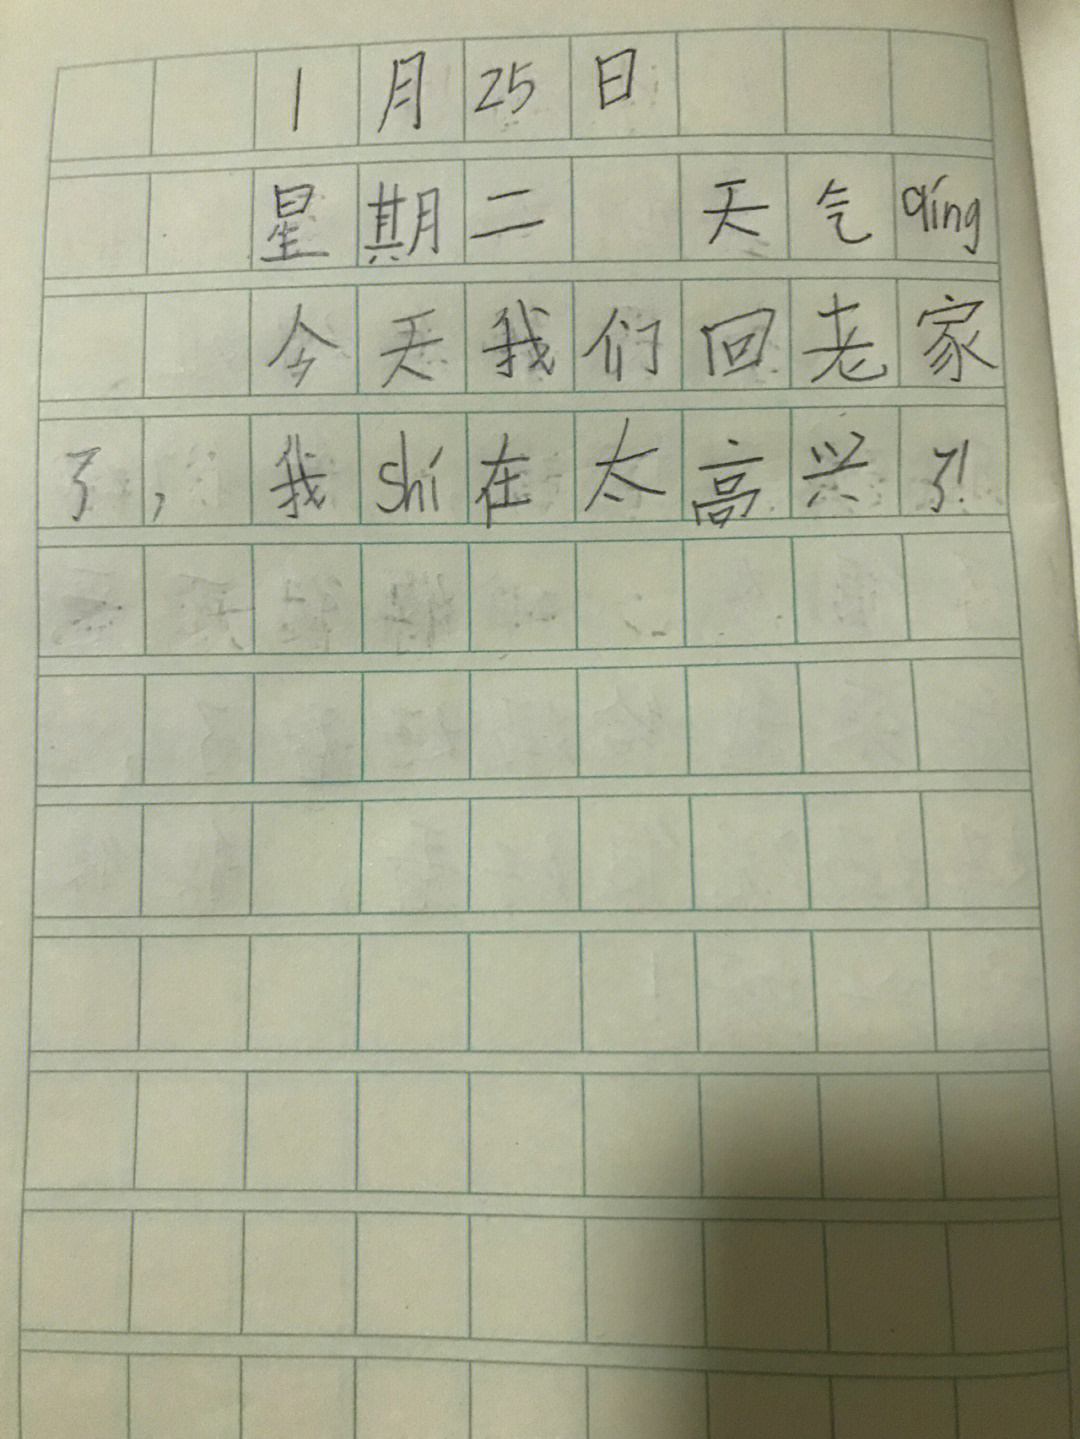 1月25日
星期二 天气qíng
今天我们回老家
了，我shí在太高兴了!